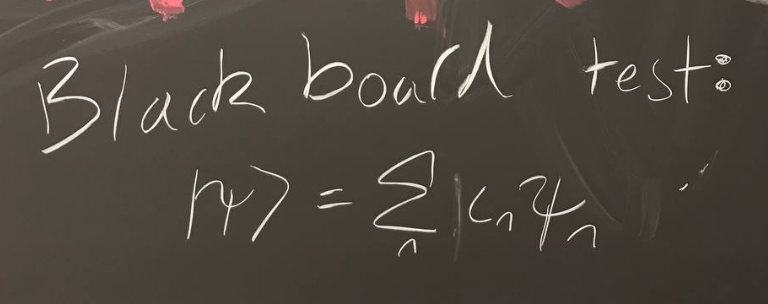 Black board test:
|ψ⟩ = Σ_n |c_n ψ_n